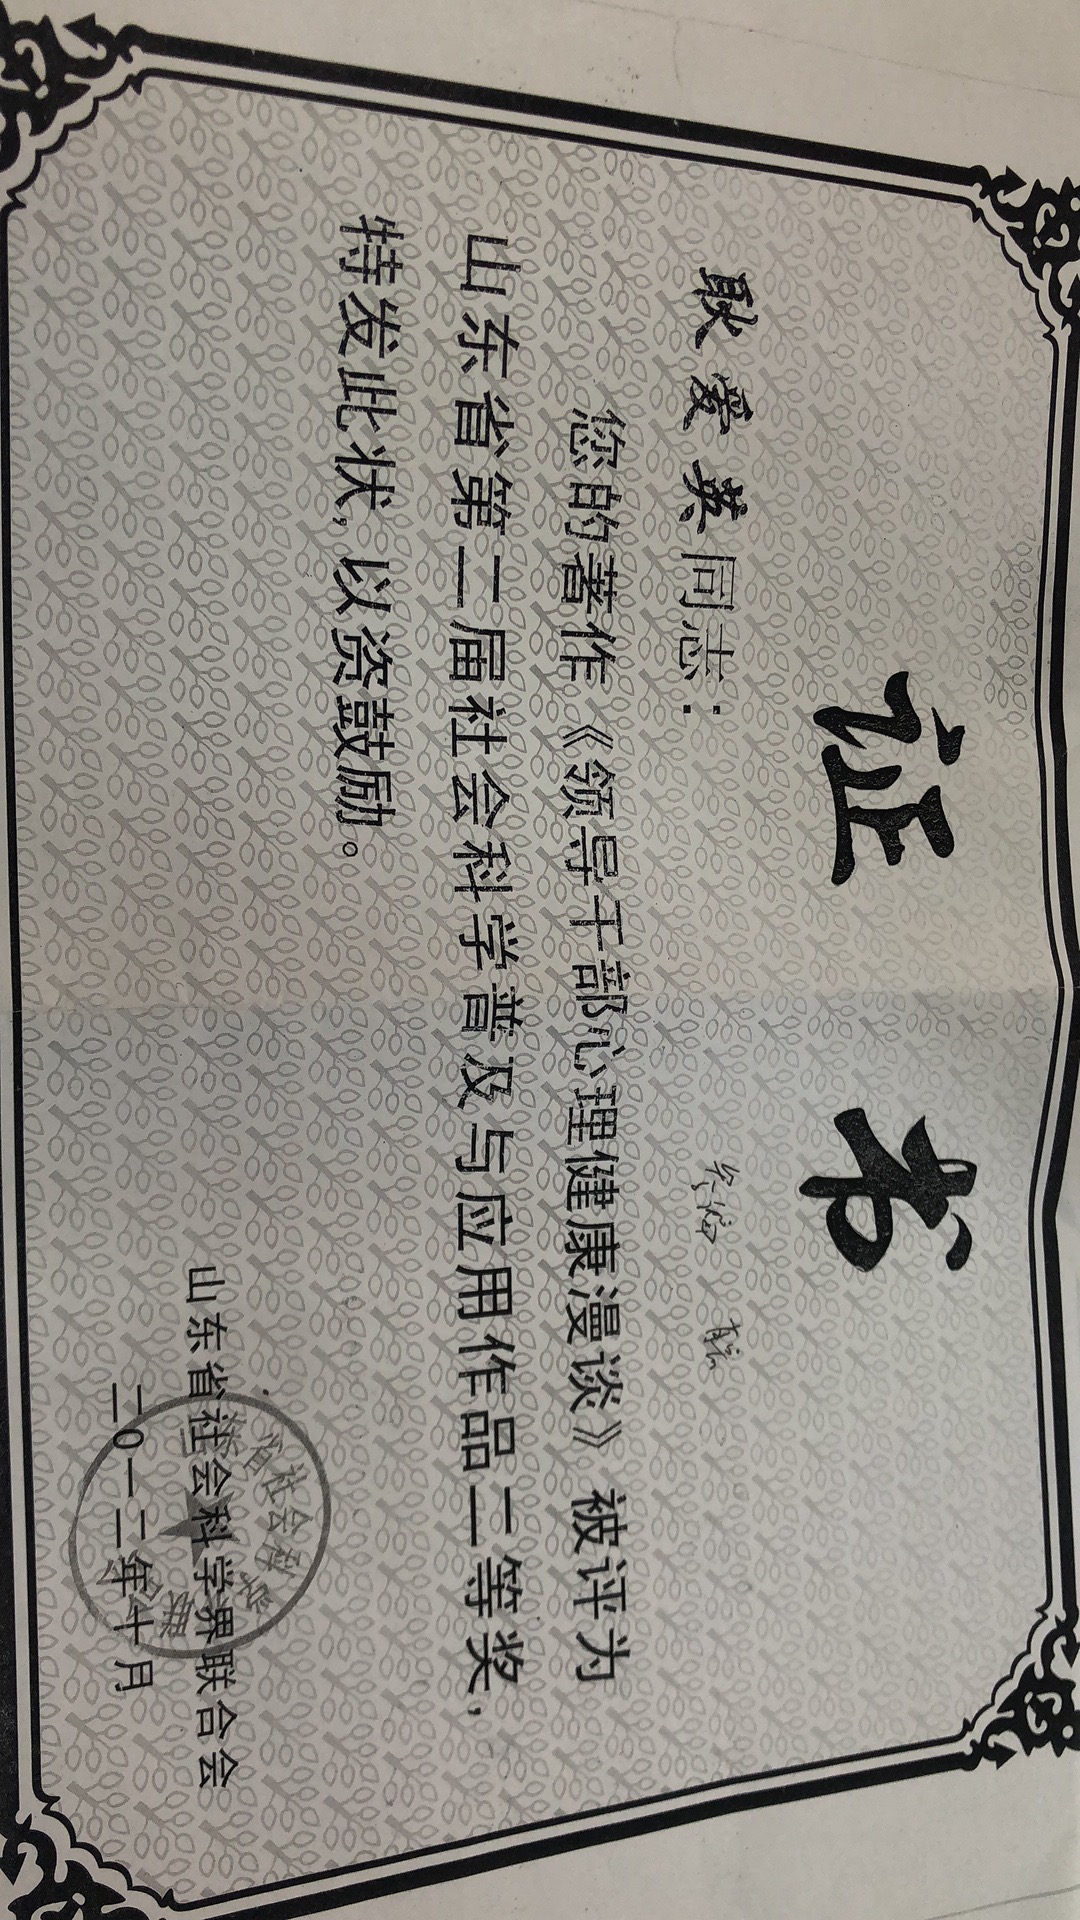 证书
耿爱英同志：
您的著作《领导干部心理健康漫谈》被评为
山东省第二届社会科学普及与应用作品二等奖，
特发此状，以资鼓励。
山东省社会科学界联合会
二0一二年十月